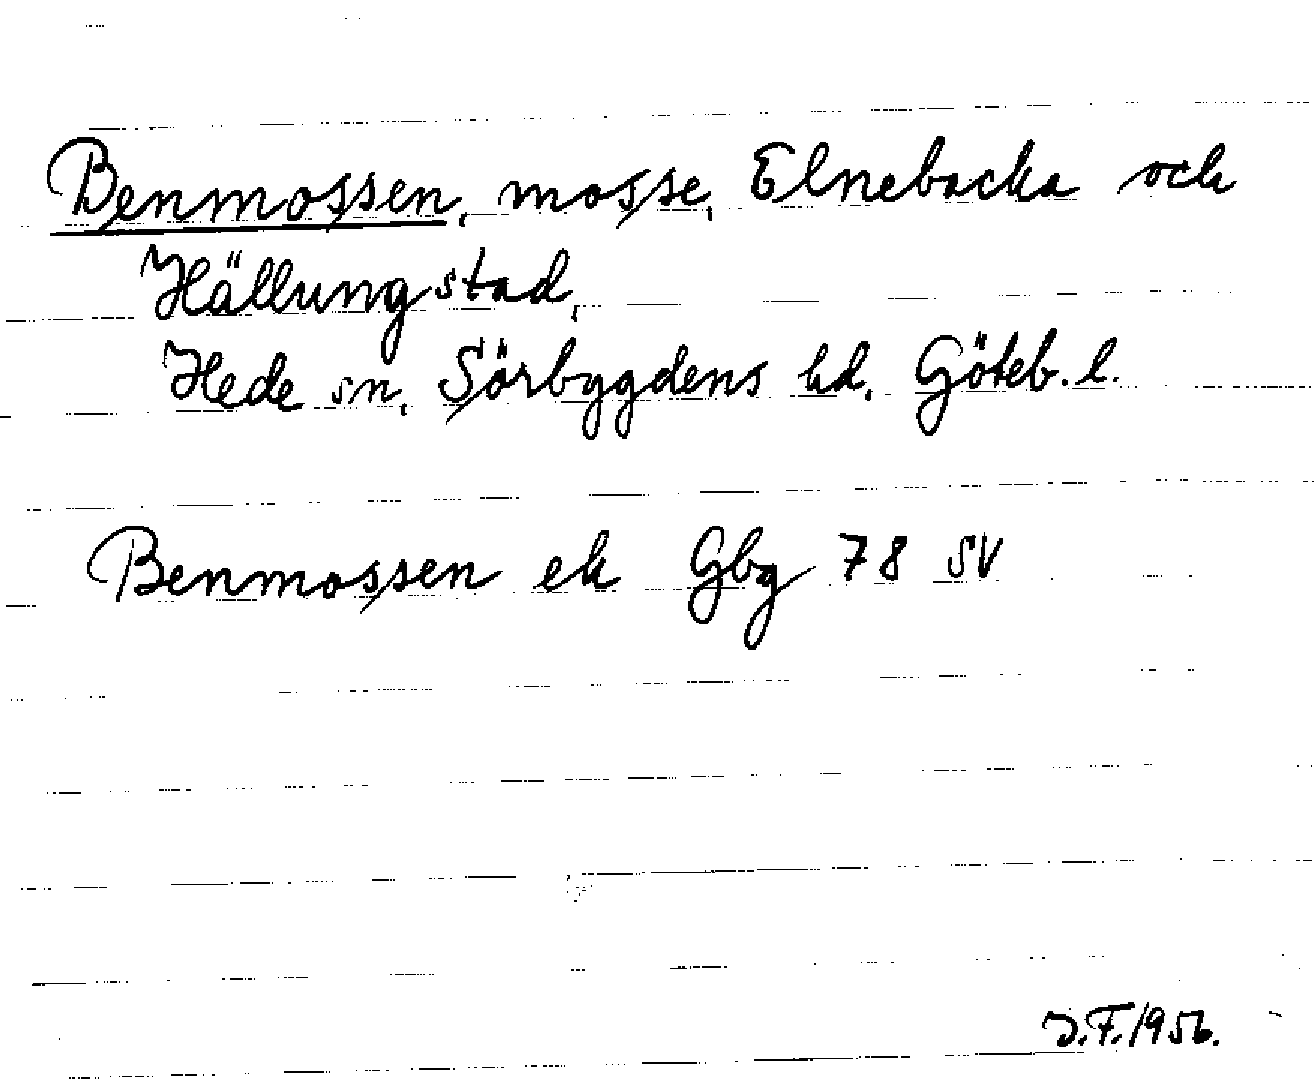 Benmossen, mosse, Elnebacka och
Hällungstad,
Hede sn, Sörbygdens hd, Göteb. l.
Benmossen ek Gbg 78 SV
J.F. 1956.